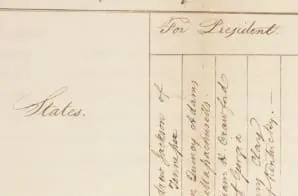 For President.
States.
Jackson of
Tennessee
Quincy Adams
Massachusetts.
H. Crawford
of Georgia
Clay
Kentucky.